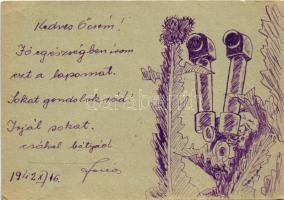 Kedves Öcsém!
Jó egészségben írom
ezt a lapomat.
Sokat gondolok rád!
Írjál sokat.
csókol bátyád
Feri
1942 XI/16.